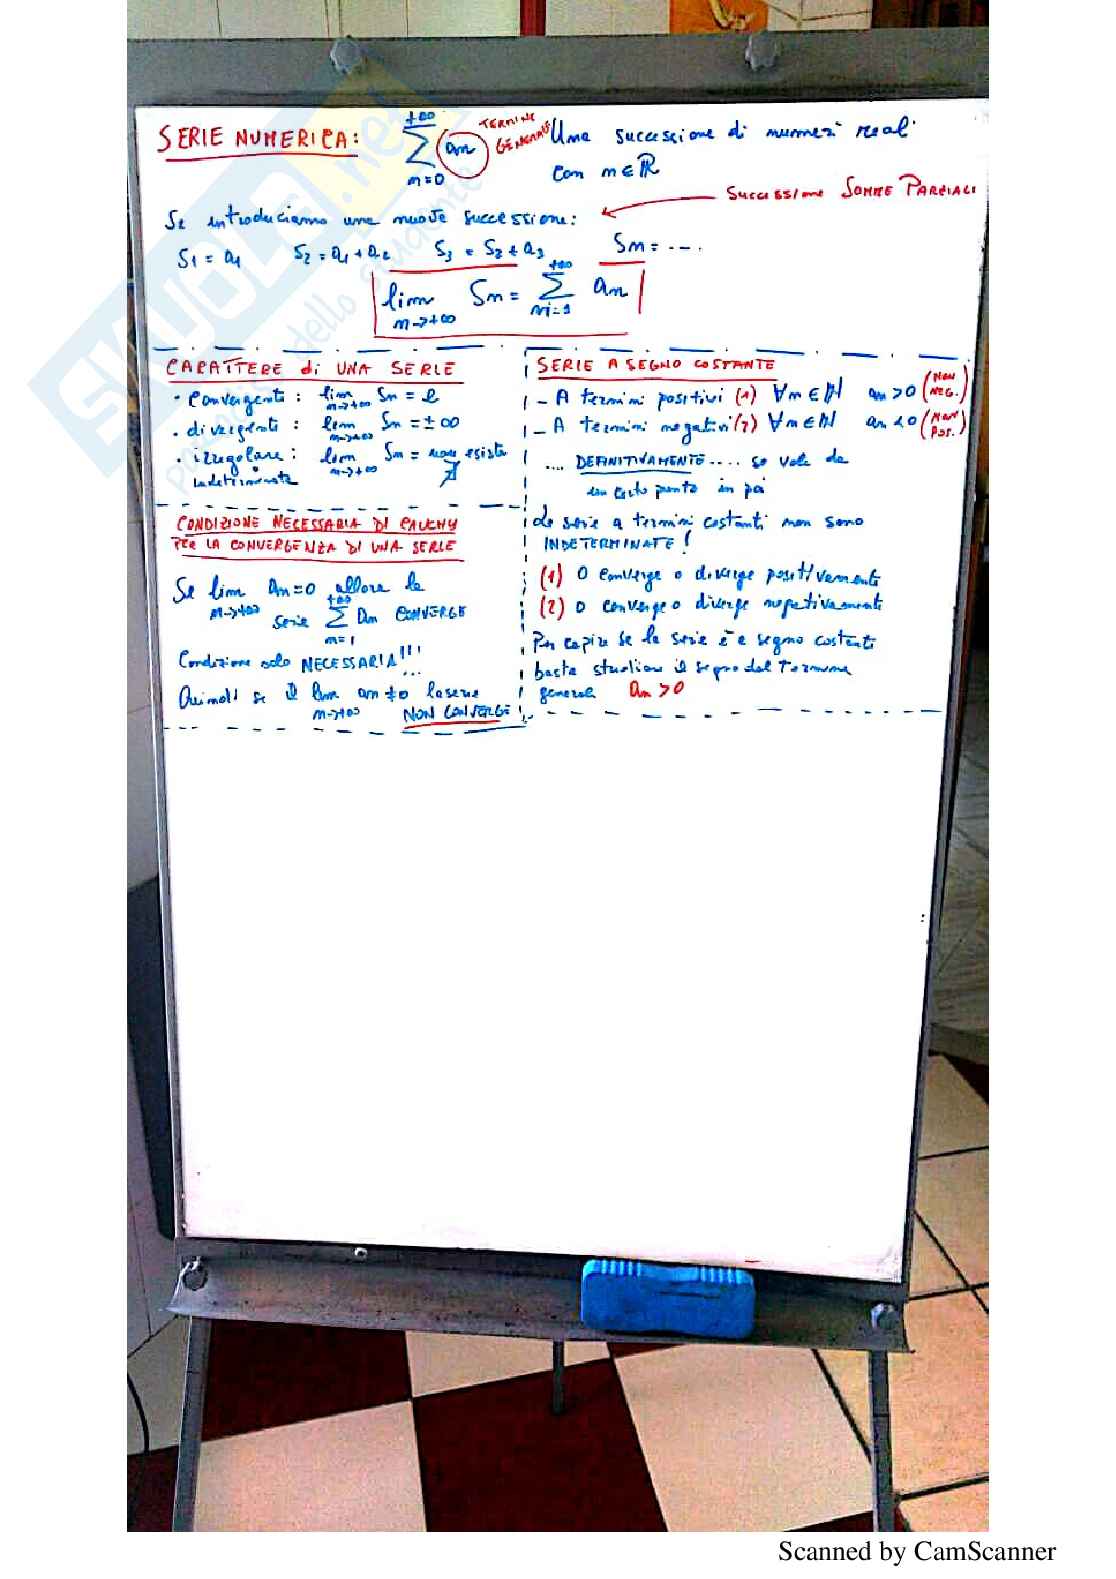 SERIE NUMERICA: +∞ ∑ n=0 an TERMINE GENERALE Una successione di numeri reali
con n∈ℝ
Successione SOMME PARZIALI
Se introduciamo una nuova successione:
S1 = a1 S2 = a1 + a2 S3 = S2 + a3 Sn = ---.
lim n->+∞ Sn = +∞ ∑ an
CARATTERE di UNA SERIE
• Convergente: lim n->+∞ Sn = l
• divergente: lim n->+∞ Sn = ±∞
• irregolare: lim n->+∞ Sn = non esiste ∄
Indeterminata
CONDIZIONE NECESSARIA DI CAUCHY
PER LA CONVERGENZA DI UNA SERIE
Se lim n->+∞ an=0 allora la
serie +∞ ∑ n=1 an CONVERGE
Condizione solo NECESSARIA!!!...
Quindi se il lim n->+∞ an ≠0 la serie
NON CONVERGE!
SERIE A SEGNO COSTANTE
- A termini positivi (1) ∀n∈ℕ an>0 (NON NEG.)
- A termini negativi (2) ∀n∈ℕ an<0 (NON POS.)
.... DEFINITIVAMENTE .... se vale da
un certo punto in poi
Le serie a termini costanti non sono
INDETERMINATE!
(1) O converge o diverge positivamente
(2) O converge o diverge negativamente
Per capire se la serie è a segno costante
basta studiare il segno del Termine
generale an>0
SKUOLA.net
dello studente
Scanned by CamScanner